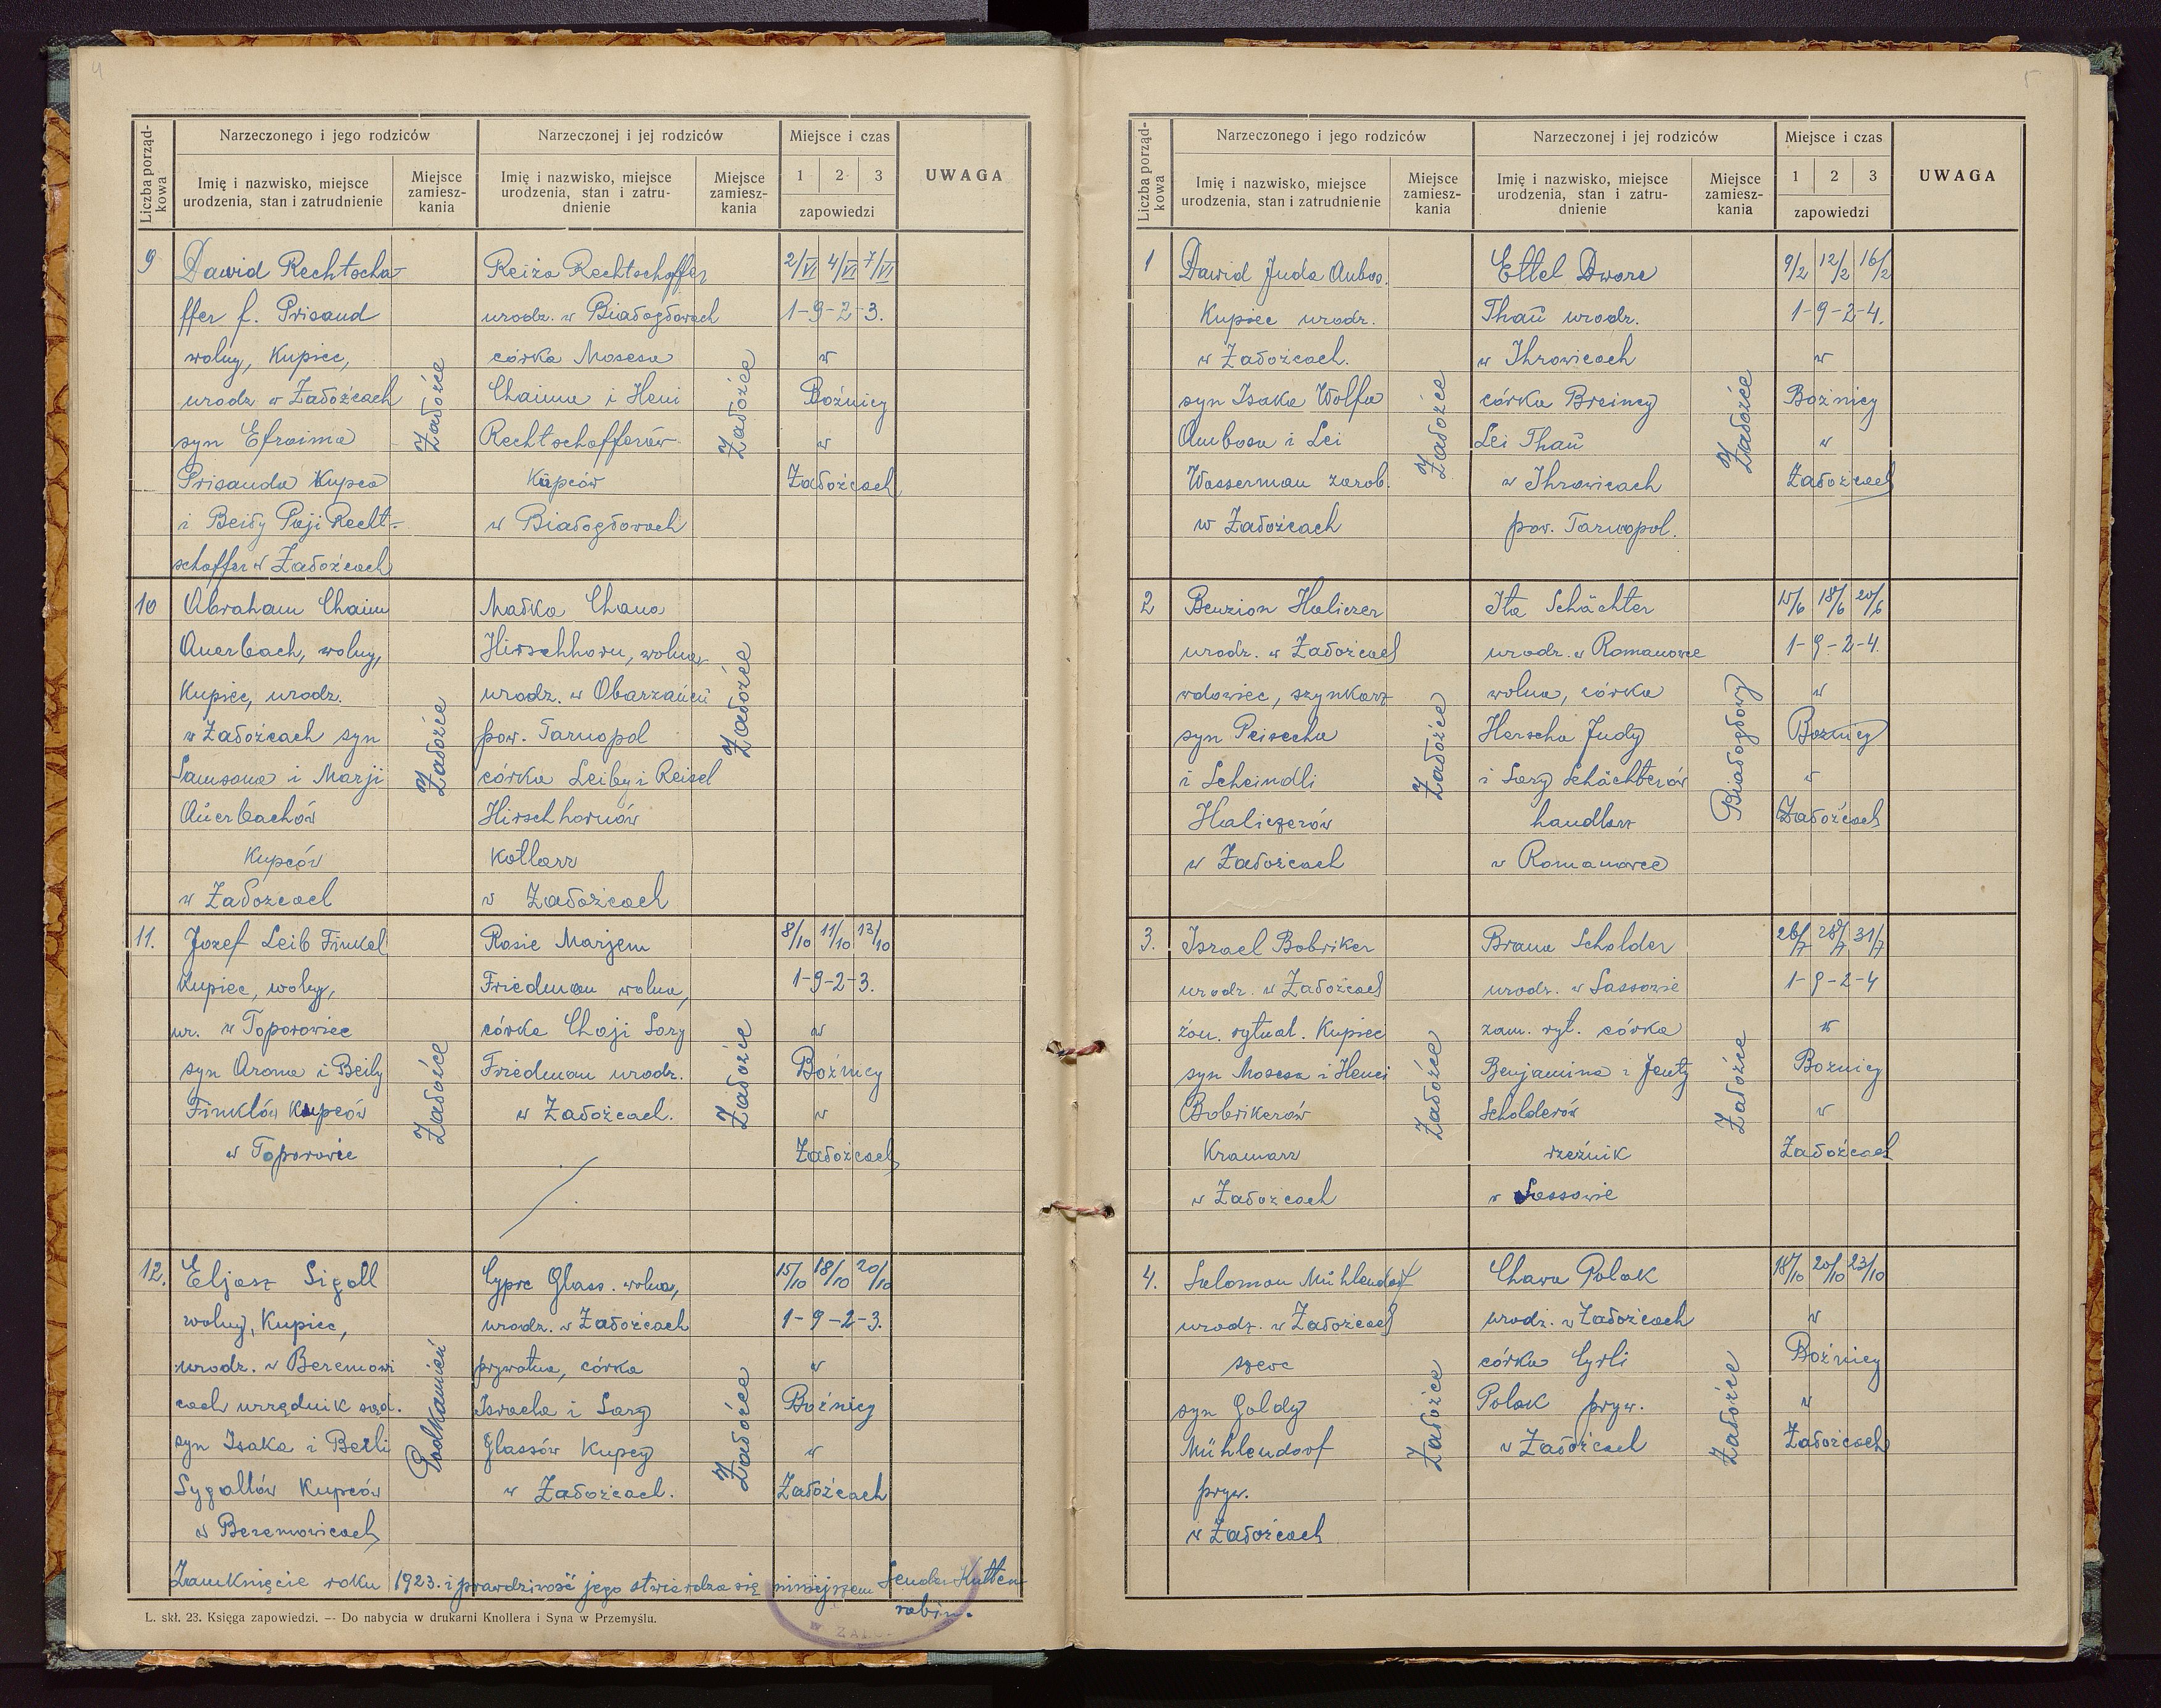 4
Liczba porząd-
kowa
Narzeczonego i jego rodziców
Narzeczonej i jej rodziców
Miejsce i czas
UWAGA
Imię i nazwisko, miejsce
urodzenia, stan i zatrudnienie
Miejsce
zamiesz-
kania
Imię i nazwisko, miejsce
urodzenia, stan i zatru-
dnienie
Miejsce
zamiesz-
kania
1 2 3
zapowiedzi
9
Dawid Rechtscha-
ffer f. Prisand
wolny, Kupiec,
urodz w Załoźcach
syn Efroima
Prisanda Kupca
i Beiły Paji Recht-
schaffer w Załoźcach
Załoźce
Reiza Rechtschaffer
urodz. w Białogłowach
córka Mosesa
Chaima i Heni
Rechtschafferów
Kupców
w Białogłowach
Załoźce
2/VI 4/VI 7/VI
1-9-2-3.
w
Bóźnicy
w
Załoźcach
10
Abraham Chaim
Auerbach, wolny,
Kupiec, urodz.
w Załoźcach syn
Samsona i Marji
Auerbachów
Kupców
w Załoźcach
Załoźce
Małka Chana
Hirschhorn, wolna,
urodz. w Obarzańcú
pow. Tarnopol
córka Leiby i Reisel
Hirschhornów
Kotlarz
w Załoźcach
Załoźce
11.
Jozef Leib Finkel
Kupiec, wolny,
ur. w Toporowiec
syn Arona i Beily
Finklów Kupców
w Toporowie
Załoźce
Rosie Marjem
Friedman wolna,
córka Chaji Sary
Friedman urodz.
w Załoźcach.
Załoźce
8/10 11/10 13/10
1-9-2-3.
w
Bóźnicy
w
Załoźcach
12.
Eljasz Sigall
wolny, Kupiec,
urodz. w Beremowi
cach urzędnik sąd.
syn Isaka i Berli
Sygallów Kupców
w Beremowicach
Podkamień
Cypre Glass. wolna,
urodz. w Załoźcach
prywatna, córka
Israela i Sary
Glassów Kupcy
w Załoźcach.
Załoźce
15/10 18/10 20/10
1-9-2-3.
w
Bóźnicy
w
Załoźcach
Zamknięcie roku 1923. i prawdziwość jego stwierdza się niniejszem Sender Kutten
rabin.
L. skł. 23. Księga zapowiedzi. — Do nabycia w drukarni Knollera i Syna w Przemyślu.
5
Liczba porząd-
kowa
Narzeczonego i jego rodziców
Narzeczonej i jej rodziców
Miejsce i czas
UWAGA
Imię i nazwisko, miejsce
urodzenia, stan i zatrudnienie
Miejsce
zamiesz-
kania
Imię i nazwisko, miejsce
urodzenia, stan i zatru-
dnienie
Miejsce
zamiesz-
kania
1 2 3
zapowiedzi
1
Dawid Juda Ambos.
Kupiec urodz.
w Załoźcach.
syn Isaka Wolfa
Ambosa i Lei
Wasserman zarob.
w Załoźcach
Załoźce
Ettel Dwore
Thaú urodz.
w Ihrowicach
córka Breincy
Lei Thaú
w Ihrowicach
pow. Tarnopol.
Załoźce
9/2 12/2 16/2
1-9-2-4.
w
Bóźnicy
w
Załoźcach
2
Benzion Haliczer
urodz. w Załoźcach
wdowiec, szynkarz
syn Peisecha
i Scheindli
Haliczerów
w Załoźcach
Załoźce
Ita Schächter
urodz. w Romanowce
wolna, córka
Herscha Judy
i Sary Schächterów
handlarz
w Romanowce
Białogłowy
15/6 18/6 20/6
1-9-2-4.
w
Bóźnicy
w
Załoźcach
3.
Israel Bobriker
urodz. w Załoźcach
żon. rytual. Kupiec
syn Mosesa i Henci
Bobrikerów
Kramarz
w Załoźcach
Załoźce
Brana Scholder
urodz. w Sassowie
zam. ryt. córka
Benjamina i Jenty
Scholderów
rzeźnik
w Sassowie
Załoźce
26/7 28/7 31/7
1-9-2-4
w
Bóźnicy
w
Załoźcach
4.
Salomon Mühlendorf
urodz. w Załoźcach
szewc
syn Goldy
Mühlendorf
pryw.
w Załoźcach
Załoźce
Chawa Polak
urodz. w Załoźcach
córka Cyrli
Polak pryw.
w Załoźcach
Załoźce
18/10 20/10 23/10
w
Bóźnicy
w
Załoźcach